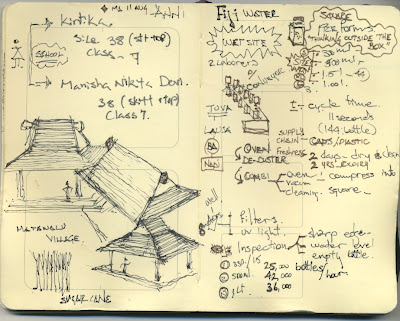 MA 11 AUG
Kirtika
Size 38 (skt + top)
Class - 7
SCHOOL
Manisha Nikita Devi.
38 (skirt + top)
Class 7.
MATAWALU
VILLAGE
SUGAR CANE
Fiji WATER
WET SITE
2 Laborers
CONVEYER
SQUARE
Performs
"THINKING OUTSIDE THE
BOX"
330 ml
500 ml
1.5 l
1.00 l
cycle time.
11 seconds
(144 bottle)
SUPPLY
CHAIN
CAPS/PLASTIC
Freshness
2 days - dry & clean
2 yrs. EXPIRY
OVEN
DE-DUSTER
COMBI
Oven
vacuum
cleaning
compress into
square
Filters.
uv light.
Inspection
sharp edge
water level
empty bottle.
330/1.5
25,000 bottles/
hour.
500ml
42,000
1 lt
36,000